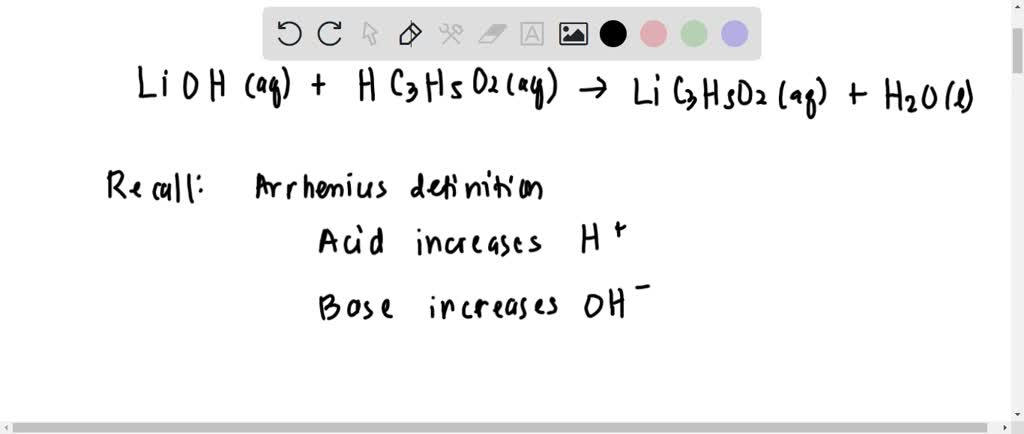 LiOH (aq) + HC3H5O2 (aq) → LiC3H5O2 (aq) + H2O(l)
Recall: Arrhenius definition
Acid increases H+
Base increases OH-